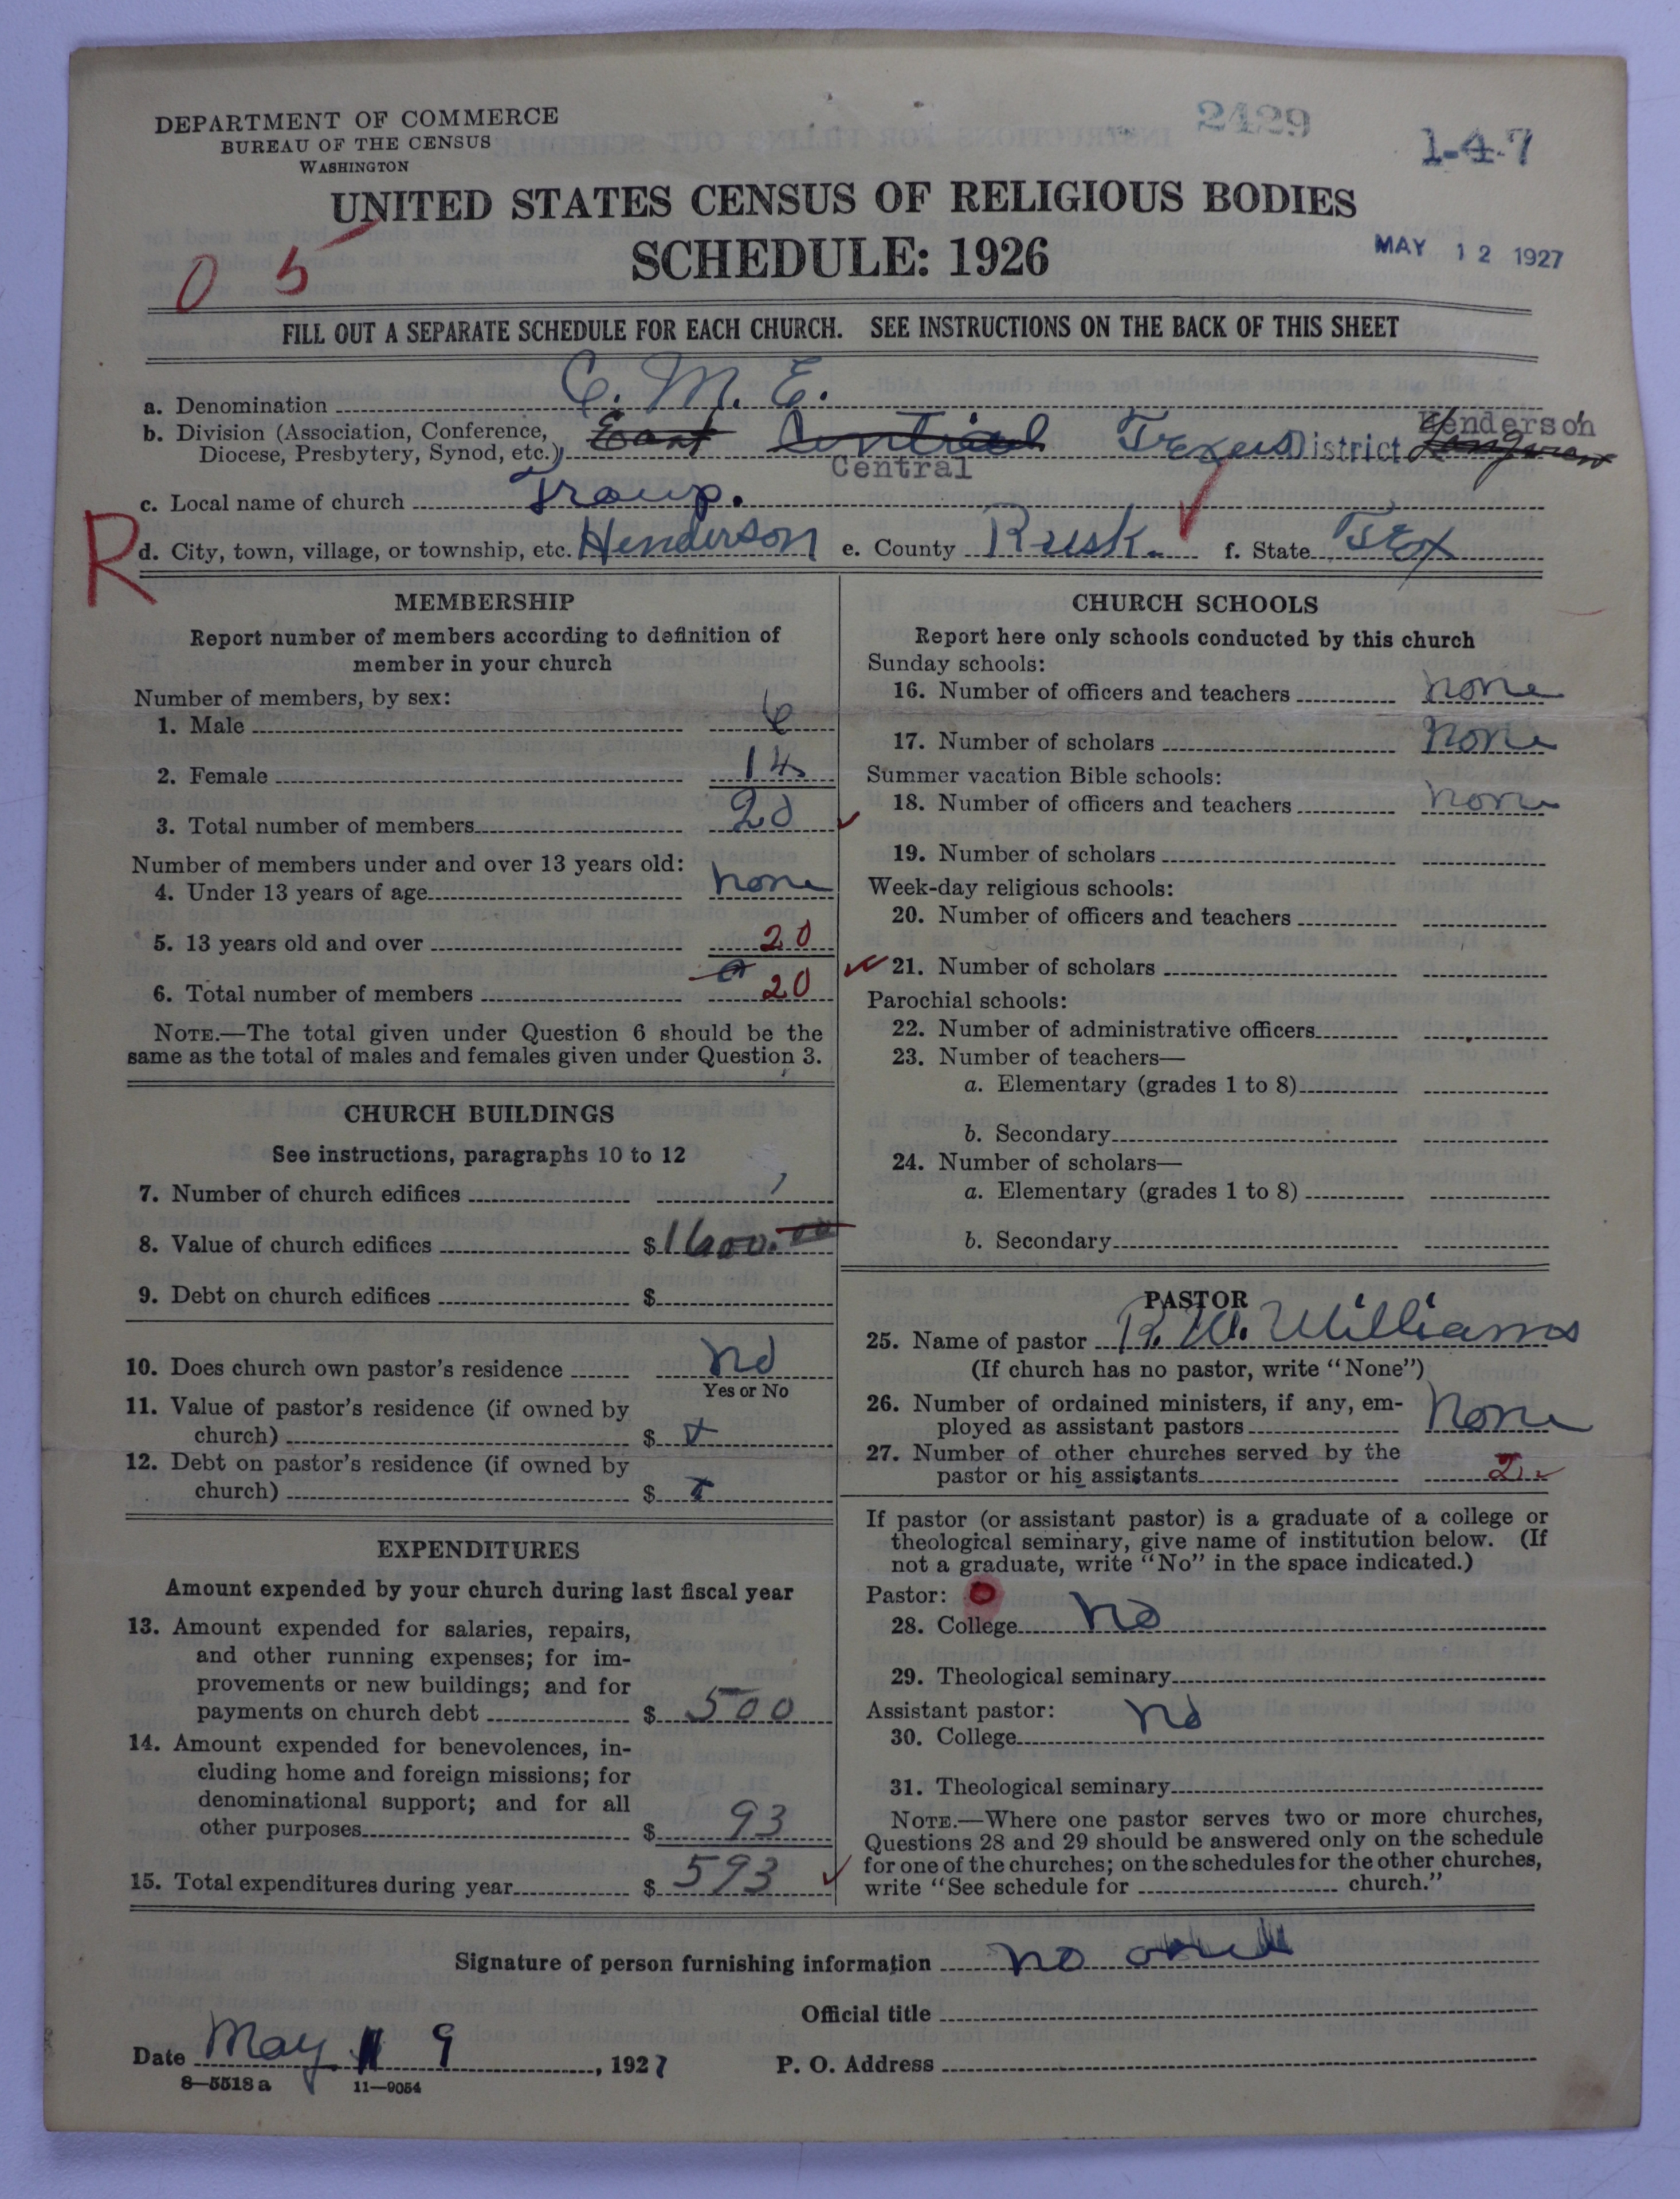 DEPARTMENT OF COMMERCE
BUREAU OF THE CENSUS
WASHINGTON
2429
1-4-7
UNITED STATES CENSUS OF RELIGIOUS BODIES
SCHEDULE: 1926
MAY 12 1927
0 5
FILL OUT A SEPARATE SCHEDULE FOR EACH CHURCH. SEE INSTRUCTIONS ON THE BACK OF THIS SHEET
a. Denomination C. M. E.
b. Division (Association, Conference, Diocese, Presbytery, Synod, etc.) East Central Texas District Henderson
Central
c. Local name of church Troup.
R
d. City, town, village, or township, etc. Henderson e. County Rusk. f. State Tex
MEMBERSHIP
Report number of members according to definition of
member in your church
Number of members, by sex:
1. Male 6
2. Female 14
3. Total number of members 20
Number of members under and over 13 years old:
4. Under 13 years of age none
5. 13 years old and over 20
6. Total number of members 20
NOTE.—The total given under Question 6 should be the
same as the total of males and females given under Question 3.
CHURCH BUILDINGS
See instructions, paragraphs 10 to 12
7. Number of church edifices 1
8. Value of church edifices $1600.00
9. Debt on church edifices $
10. Does church own pastor's residence no
Yes or No
11. Value of pastor's residence (if owned by
church) $ x
12. Debt on pastor's residence (if owned by
church) $ x
EXPENDITURES
Amount expended by your church during last fiscal year
13. Amount expended for salaries, repairs,
and other running expenses; for im-
provements or new buildings; and for
payments on church debt $ 500
14. Amount expended for benevolences, in-
cluding home and foreign missions; for
denominational support; and for all
other purposes $ 93
15. Total expenditures during year $ 593
CHURCH SCHOOLS
Report here only schools conducted by this church
Sunday schools:
16. Number of officers and teachers none
17. Number of scholars none
Summer vacation Bible schools:
18. Number of officers and teachers none
19. Number of scholars
Week-day religious schools:
20. Number of officers and teachers
21. Number of scholars
Parochial schools:
22. Number of administrative officers
23. Number of teachers—
a. Elementary (grades 1 to 8)
b. Secondary
24. Number of scholars—
a. Elementary (grades 1 to 8)
b. Secondary
PASTOR
25. Name of pastor R. W. Williams
(If church has no pastor, write "None")
26. Number of ordained ministers, if any, em-
ployed as assistant pastors None
27. Number of other churches served by the
pastor or his assistants 2
If pastor (or assistant pastor) is a graduate of a college or
theological seminary, give name of institution below. (If
not a graduate, write "No" in the space indicated.)
Pastor: 0
28. College No
29. Theological seminary
Assistant pastor:
30. College No
31. Theological seminary
NOTE.—Where one pastor serves two or more churches,
Questions 28 and 29 should be answered only on the schedule
for one of the churches; on the schedules for the other churches,
write "See schedule for church."
Signature of person furnishing information no
Official title
Date May 9, 1927 P. O. Address
8—5518 a 11—9054